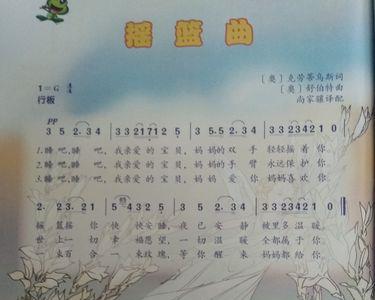 摇篮曲
1=G 4/4
〔奥〕克劳蒂乌斯词
行板
〔奥〕舒伯特曲
尚家骧译配
pp
3 5 2. 34 | 3 3 2 1 7 1 2 5 | 3 5 2. 34 | 3 3 2 3 4 2 1 0
1.睡吧,睡 吧,我亲爱的宝贝,妈妈的双手 轻轻摇着你
2.睡吧,睡 吧,我亲爱的宝贝,妈妈的手臂 永远保护你
3.睡吧,睡 吧,我亲爱的宝贝,妈妈爱你 妈妈喜欢你
2. 2 3. 2 1 | 5 4 3 2 5 | 2. 23. 21 | 5 4 3 2 1 0
摇篮摇你 快快安睡,夜已安静 被里多温暖
世上一切 幸福愿望,一切温暖 全都属于你
一束百合 一束玫瑰,等你醒来 妈妈都给你